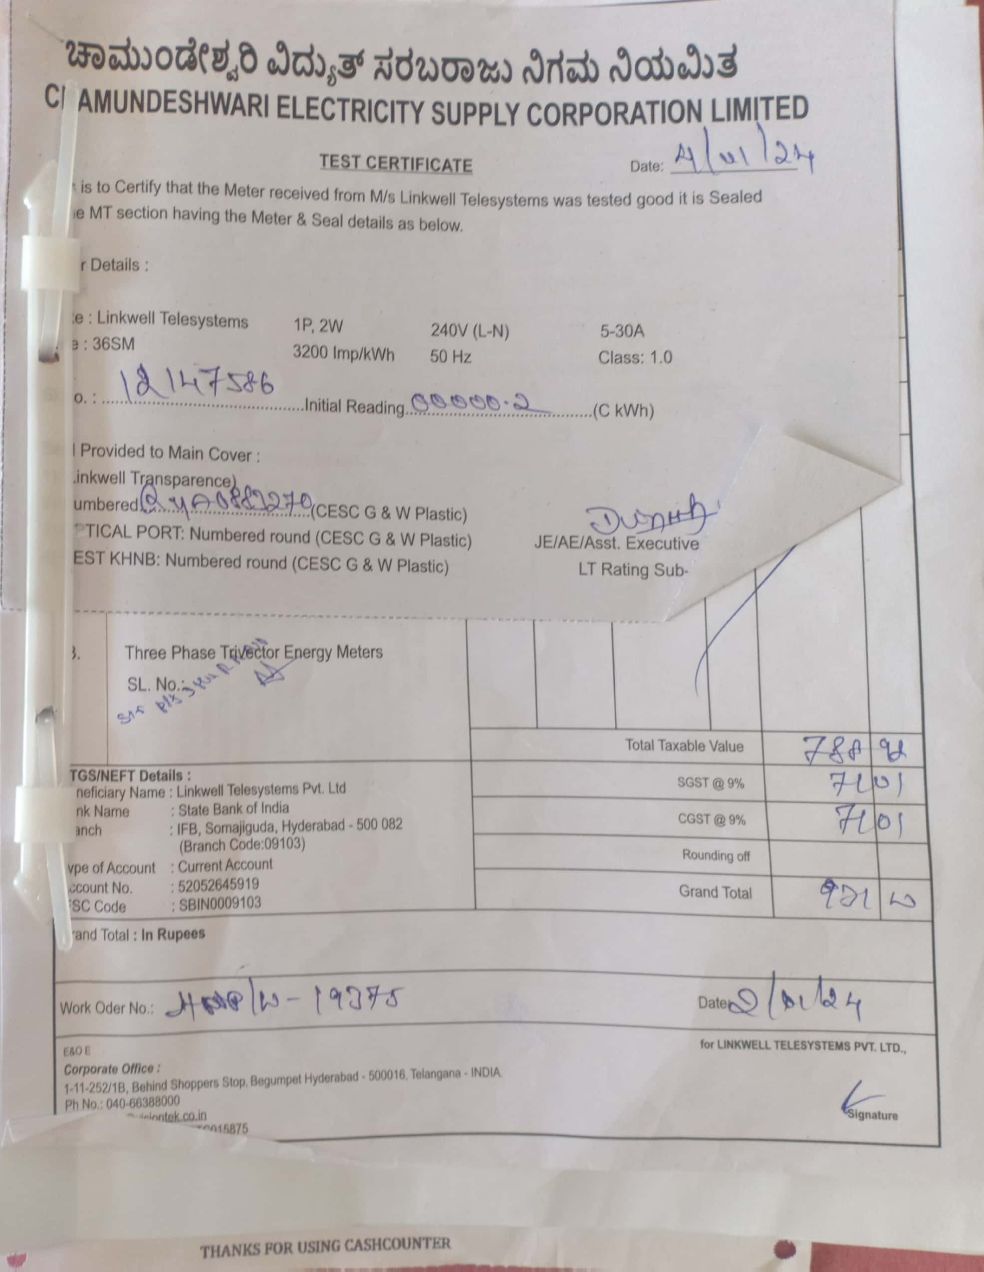 ಚಾಮುಂಡೇಶ್ವರಿ ವಿದ್ಯುತ್ ಸರಬರಾಜು ನಿಗಮ ನಿಯಮಿತ
AMUNDESHWARI ELECTRICITY SUPPLY CORPORATION LIMITED
TEST CERTIFICATE
Date: 4/01/24
is to Certify that the Meter received from M/s Linkwell Telesystems was tested good it is Sealed
MT section having the Meter & Seal details as below.
r Details :
e : Linkwell Telesystems 1P, 2W 240V (L-N) 5-30A
: 36SM 3200 Imp/kWh 50 Hz Class: 1.0
o. : 12147586 Initial Reading 00000.2 (C kWh)
Provided to Main Cover :
inkwell Transparence)
umbered (CESC G & W Plastic)
TICAL PORT: Numbered round (CESC G & W Plastic) JE/AE/Asst. Executive
EST KHNB: Numbered round (CESC G & W Plastic) LT Rating Sub-
3. Three Phase Trivector Energy Meters
SL. No.:
Total Taxable Value 788
SGST @ 9% 71 01
CGST @ 9% 71 01
Rounding off
Grand Total 931
TGS/NEFT Details :
neficiary Name : Linkwell Telesystems Pvt. Ltd
nk Name : State Bank of India
anch : IFB, Somajiguda, Hyderabad - 500 082
(Branch Code:09103)
ype of Account : Current Account
ccount No. : 52052645919
SC Code : SBIN0009103
and Total : In Rupees
Work Oder No.: 19375 Date 2/01/24
E&O E for LINKWELL TELESYSTEMS PVT. LTD.,
Corporate Office :
1-11-252/1B, Behind Shoppers Stop, Begumpet Hyderabad - 500016, Telangana - INDIA.
Ph No.: 040-66388000
iontek.co.in
015875
Signature
THANKS FOR USING CASHCOUNTER